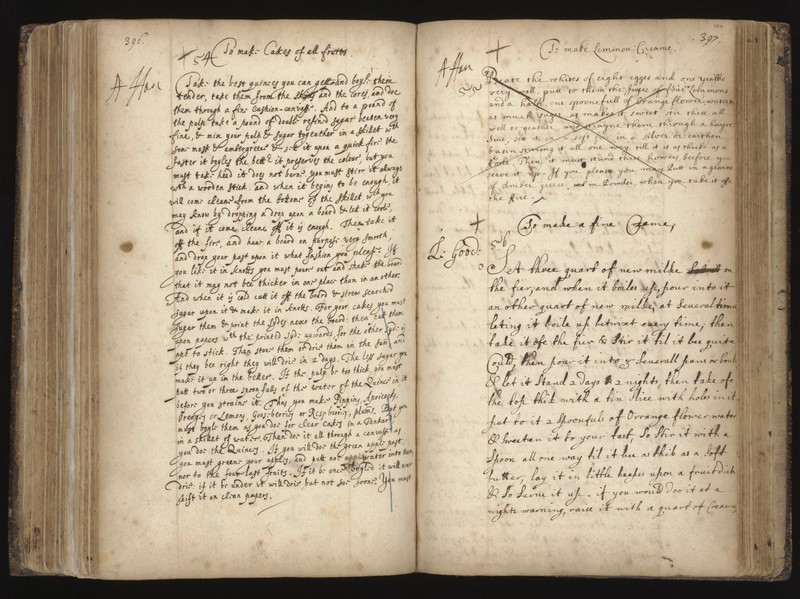 396.
To make Cakes of all fruits
54
A Han
Take the best quinces you can get and boyle them
tender, take them from the skins and the cores, and doe
them through a fine Cushion-canvass. And to a pound of
the pulp take a pound of double refin'd sugar beaten very
fine, & mix your pulp & sugar togeather in a skillet with
som musk & ambergreece & set it upon a quick fire the
faster it boyles the better it preserves the colour, but you
must take heed it does not burn, you must stirr it allways
with a wooden stick. and when it begins to be enough, it
will come cleane from the bottome of the skillet, wch you
may know by dropping a drop upon a board & let it coole,
and if it come cleane off it is enough. Then take it
off the fire, and have a board on purpose very smooth,
and drop your past upon it what fashion you please. If
you like it in knotts you must poure out and shake the board
that it may not bee thicker in one place than in an other.
And when it is cold cutt it off the board & strew searched
sugar upon it & make it in knotts. For your cakes you must
sugar them & print the sydes next the board: then putt them
upon papers with the printed syde upwards, for the other syde is
apt to stick. Then stove them or drie them in the sun, and
if they bee right they will drie in 2 days. The less sugar you
make it up in the better. If the pulp be too thick you must
putt two or three spoonfulls of the water of the Quinces in it
before you straine it. Thus you make Pippins, Apricocks,
Orenges or Lemons, Gooseberries or Raspberries, plums. But you
must boyle them as you doe for clear cakes in a Tankard
in a skillet of water. Then doe it all through a canvass as
you doe the Quinces. If you will doe the green apple past
you must greene your apples, and putt not water into them
nor to the four last fruits. If it be once boyled it will never
drie. if it be under it will drie but not soe soone. You must
shift it on clean papers.
397.
To make Lemmon Creame.
A Han
Beate the whites of eight egges and one yealke
very well, put to them the juyce of four Lemmons
and a halfe one spoonefull of Orange flower water
as much sugar as makes it sweet, stir these all
well to geather and strayne them through a hayre
sive, set it on a soft fire in a silver or earthen
basin stirring it all one way, till it is as thick as a
Then it must stand three howers before you
serve it up. If you please you may Put in a graine
of Amber greece, in Powder, when you take it off
the fire.
To make a fine Creame,
L. Good:
Set three quart of new milke on
the fier, and when it boiles up, pour into it
an other quart of new milke, at severall times
leting it boile up betwixt every time, then
take it ofe the fier & stir it til it bee quite
Could, then pour it into Severall pans or bouls
& let it stand 2 days & 2 nights, then take ofe
the top thick with a tin slice with holes in it
put to it 2 spoonfuls of Orrange flower water
& sweeten it to your tast, So Stir it with a
spoon all one way til it bee as thik as a soft
butter, lay it in little heapes upon a fruit dish
& So Serve it up. if you would doe it at a
nights warning, raise it with a quart of Creame,